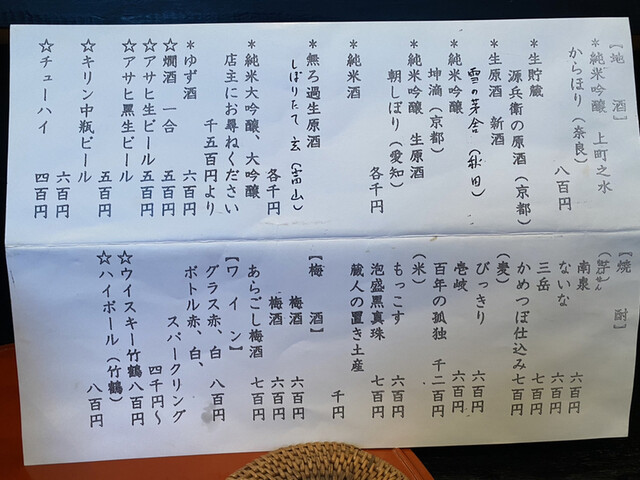 【地 酒】
*純米吟醸 上町之水
からほり(奈良)
八百円
*生貯蔵
源兵衛の原酒(京都)
*生原酒 新酒
雪の茅舎(秋田)
*純米吟醸
坤滴(京都)
*純米吟醸 生原酒
朝しぼり(愛知)
各千円
*純米酒
*無ろ過生原酒
しぼりたて 玄(富山)
各千円
*純米大吟醸、大吟醸
店主にお尋ねください
千五百円より
*ゆず酒 六百円
☆燗酒 一合 五百円
☆アサヒ生ビール 五百円
☆アサヒ黒生ビール
五百円
☆キリン中瓶ビール
六百円
☆チューハイ 四百円
【焼 酎】
(芋)
南泉 六百円
ないな 六百円
三岳 七百円
かめつぼ仕込み 七百円
(麦)
びっきり 六百円
壱岐 六百円
百年の孤独 千二百円
(米)
もっこす 六百円
泡盛黒真珠 七百円
蔵人の置き土産
千円
【梅 酒】
梅酒 六百円
梅酒 六百円
あらごし梅酒 七百円
【ワイン】
グラス赤、白 八百円
ボトル赤、白、
スパークリング
四千円~
☆ウイスキー竹鶴 八百円
☆ハイボール(竹鶴)
八百円